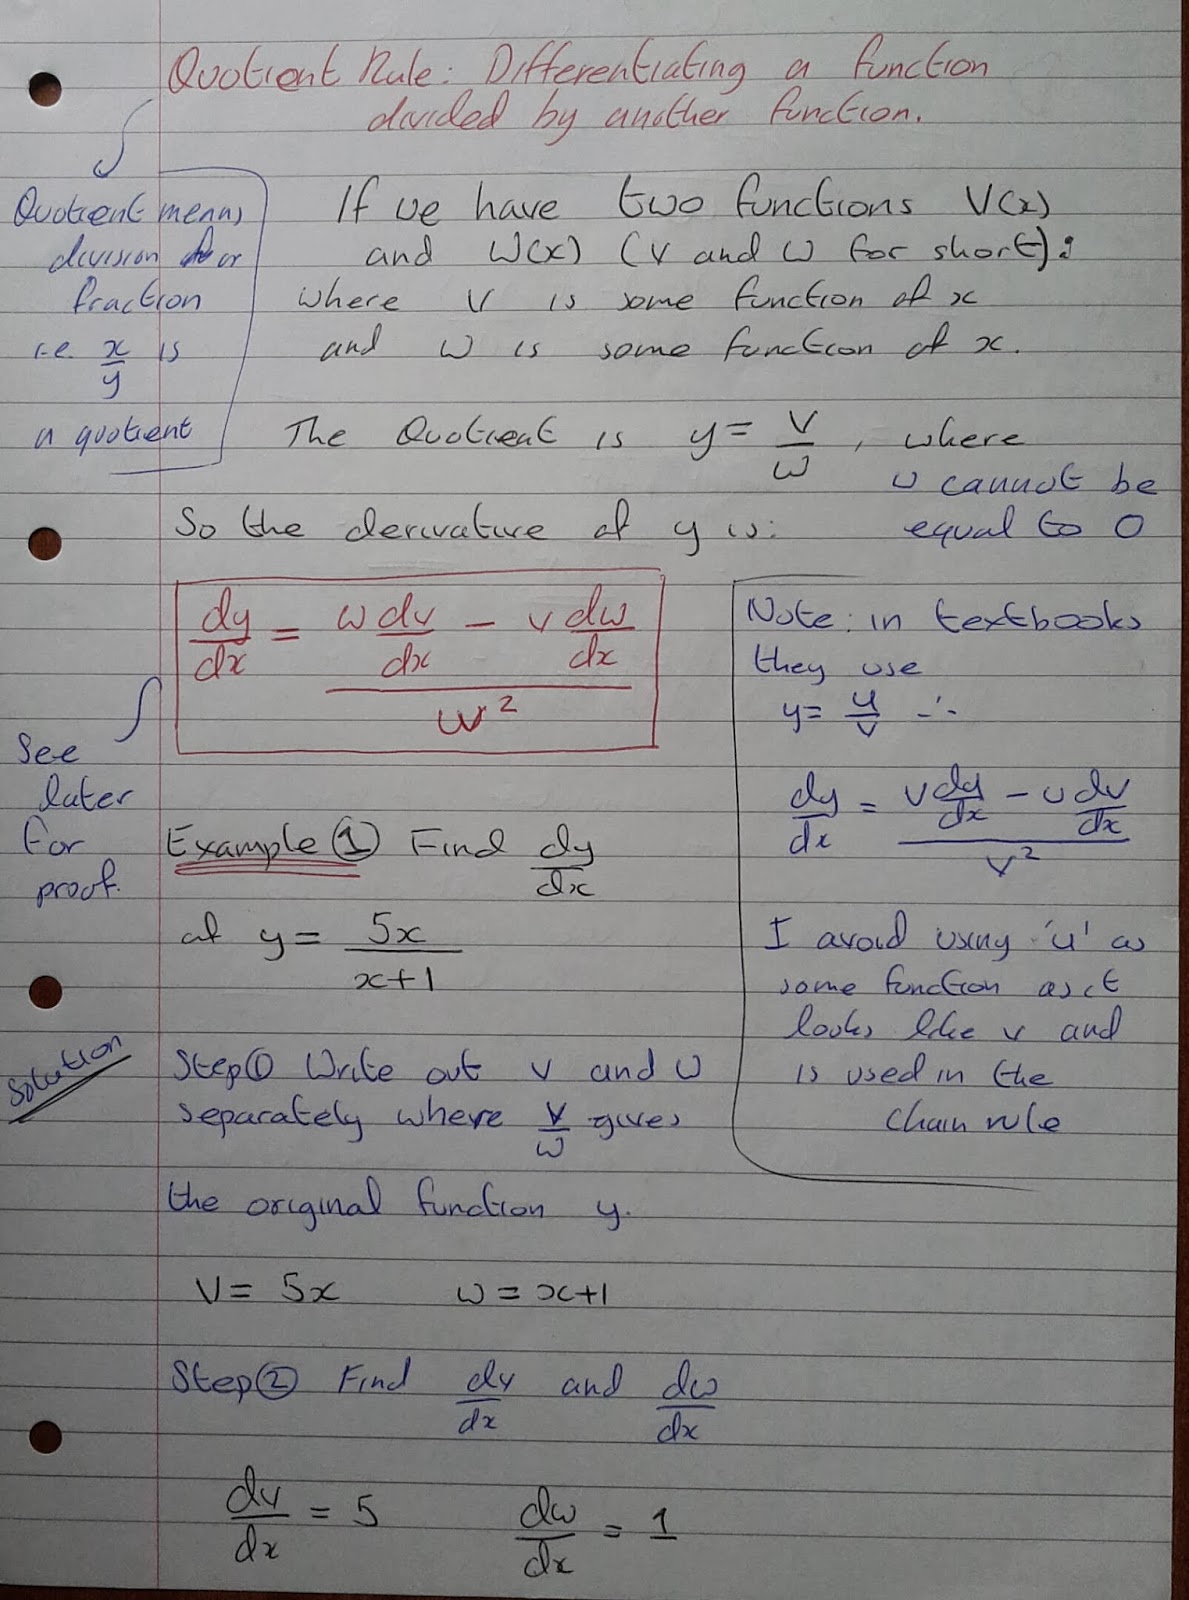 Quotient Rule: Differentiating a function
divided by another function.
Quotient means
division or
fraction
i.e. x/y is
a quotient
If we have two functions V(x)
and W(x) (v and w for short):
where v is some function of x
and w is some function of x.
The Quotient is y = v/w, where
w cannot be
equal to 0
So the derivative of y is:
dy/dx = (w dv/dx - v dw/dx)/w²
See
later
for
proof.
Note: in textbooks
they use
y = u/v ∴
dy/dx = (v du/dx - u dv/dx)/v²
I avoid using 'u' as
some function as it
looks like v and
is used in the
chain rule
Example ① Find dy/dx
of y = 5x/(x+1)
Solution
Step ① Write out v and w
separately where v/w gives
the original function y.
V = 5x w = x+1
Step ② Find dv/dx and dw/dx
dv/dx = 5 dw/dx = 1